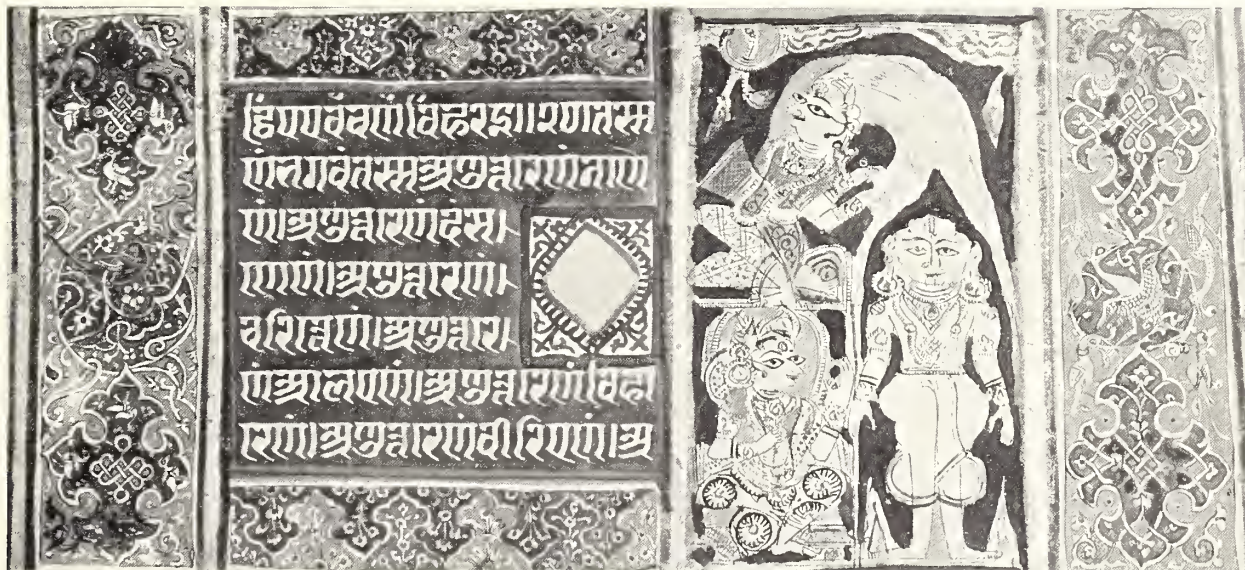 ट्ठिएएवंचणंविहरइ॥तस्स
णंभगवंतस्सअणुत्तरेणंनाणे
णं।अणुत्तरेणंदंस
णेणं।अणुत्तरेणं
चरित्तेणं।अणुत्तरे
णंआलएणं।अणुत्तरेणंविहा
रेणं।अणुत्तरेणंवीरिएणं।अ